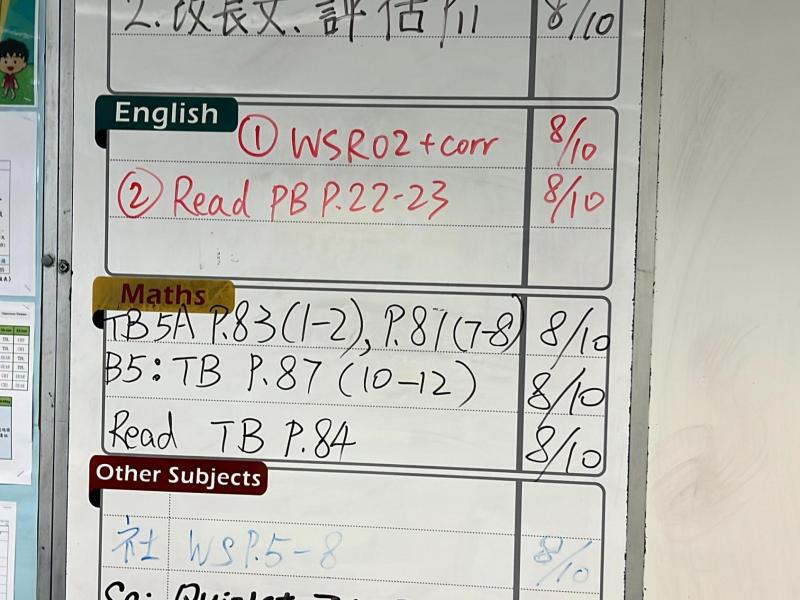 2. 改長文、評估 P.11 8/10
English
① WSR02 + corr 8/10
② Read PB P.22-23 8/10
Maths
TB5A P.83(1-2), P.87(7-8) 8/10
B5: TB P.87 (10-12) 8/10
Read TB P.84 8/10
Other Subjects
社 WS P.5-8 8/10